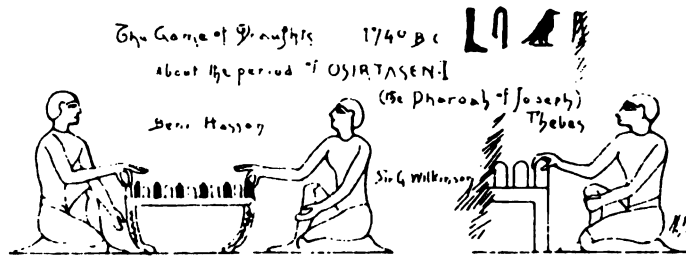 The Game of Draughts 1740 BC
About the period of OSIRTASEN I
(the Pharoah of Joseph)
Beni Hassan
Thebes
Sir G Wilkinson